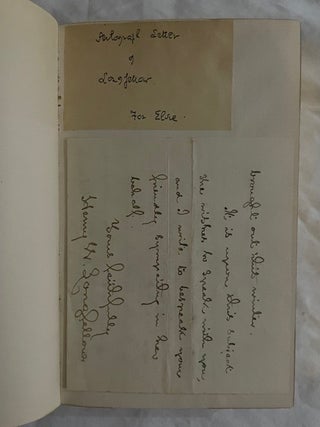 Autograph Letter
of
Longfellow
For Elsie.
brought out this winter.
It is upon this subject
she wishes to speak with you,
and I write to bespeak your
friendly sympathy in her
behalf.
Yours faithfully
Henry W. Longfellow